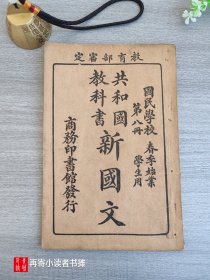 教育部審定
國民學校 春季始業
第八冊 學生用
共和國
教科書
新國文
商務印書館發行
再寄小读者书摊